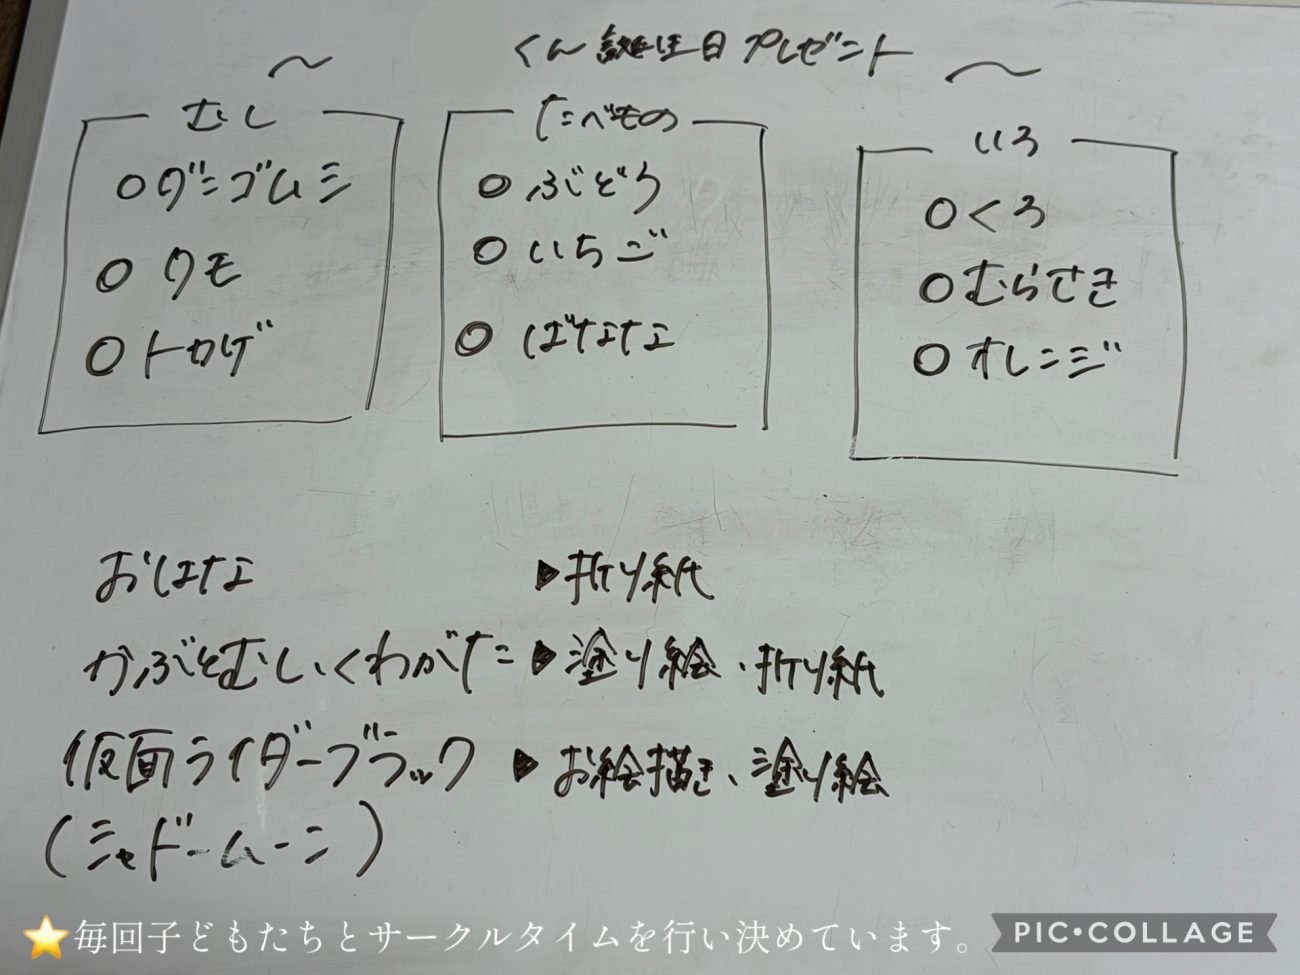 〜 くん誕生日プレゼント 〜
むし
○ダンゴムシ
○クモ
○トカゲ
たべもの
○ぶどう
○いちご
○ばなな
いろ
○くろ
○むらさき
○オレンジ
おはな ▶折り紙
かぶとむしくわがた▶塗り絵、折り紙
仮面ライダーブラック ▶お絵描き、塗り絵
(シャドームーン)
⭐毎回子どもたちとサークルタイムを行い決めています。
PIC•COLLAGE